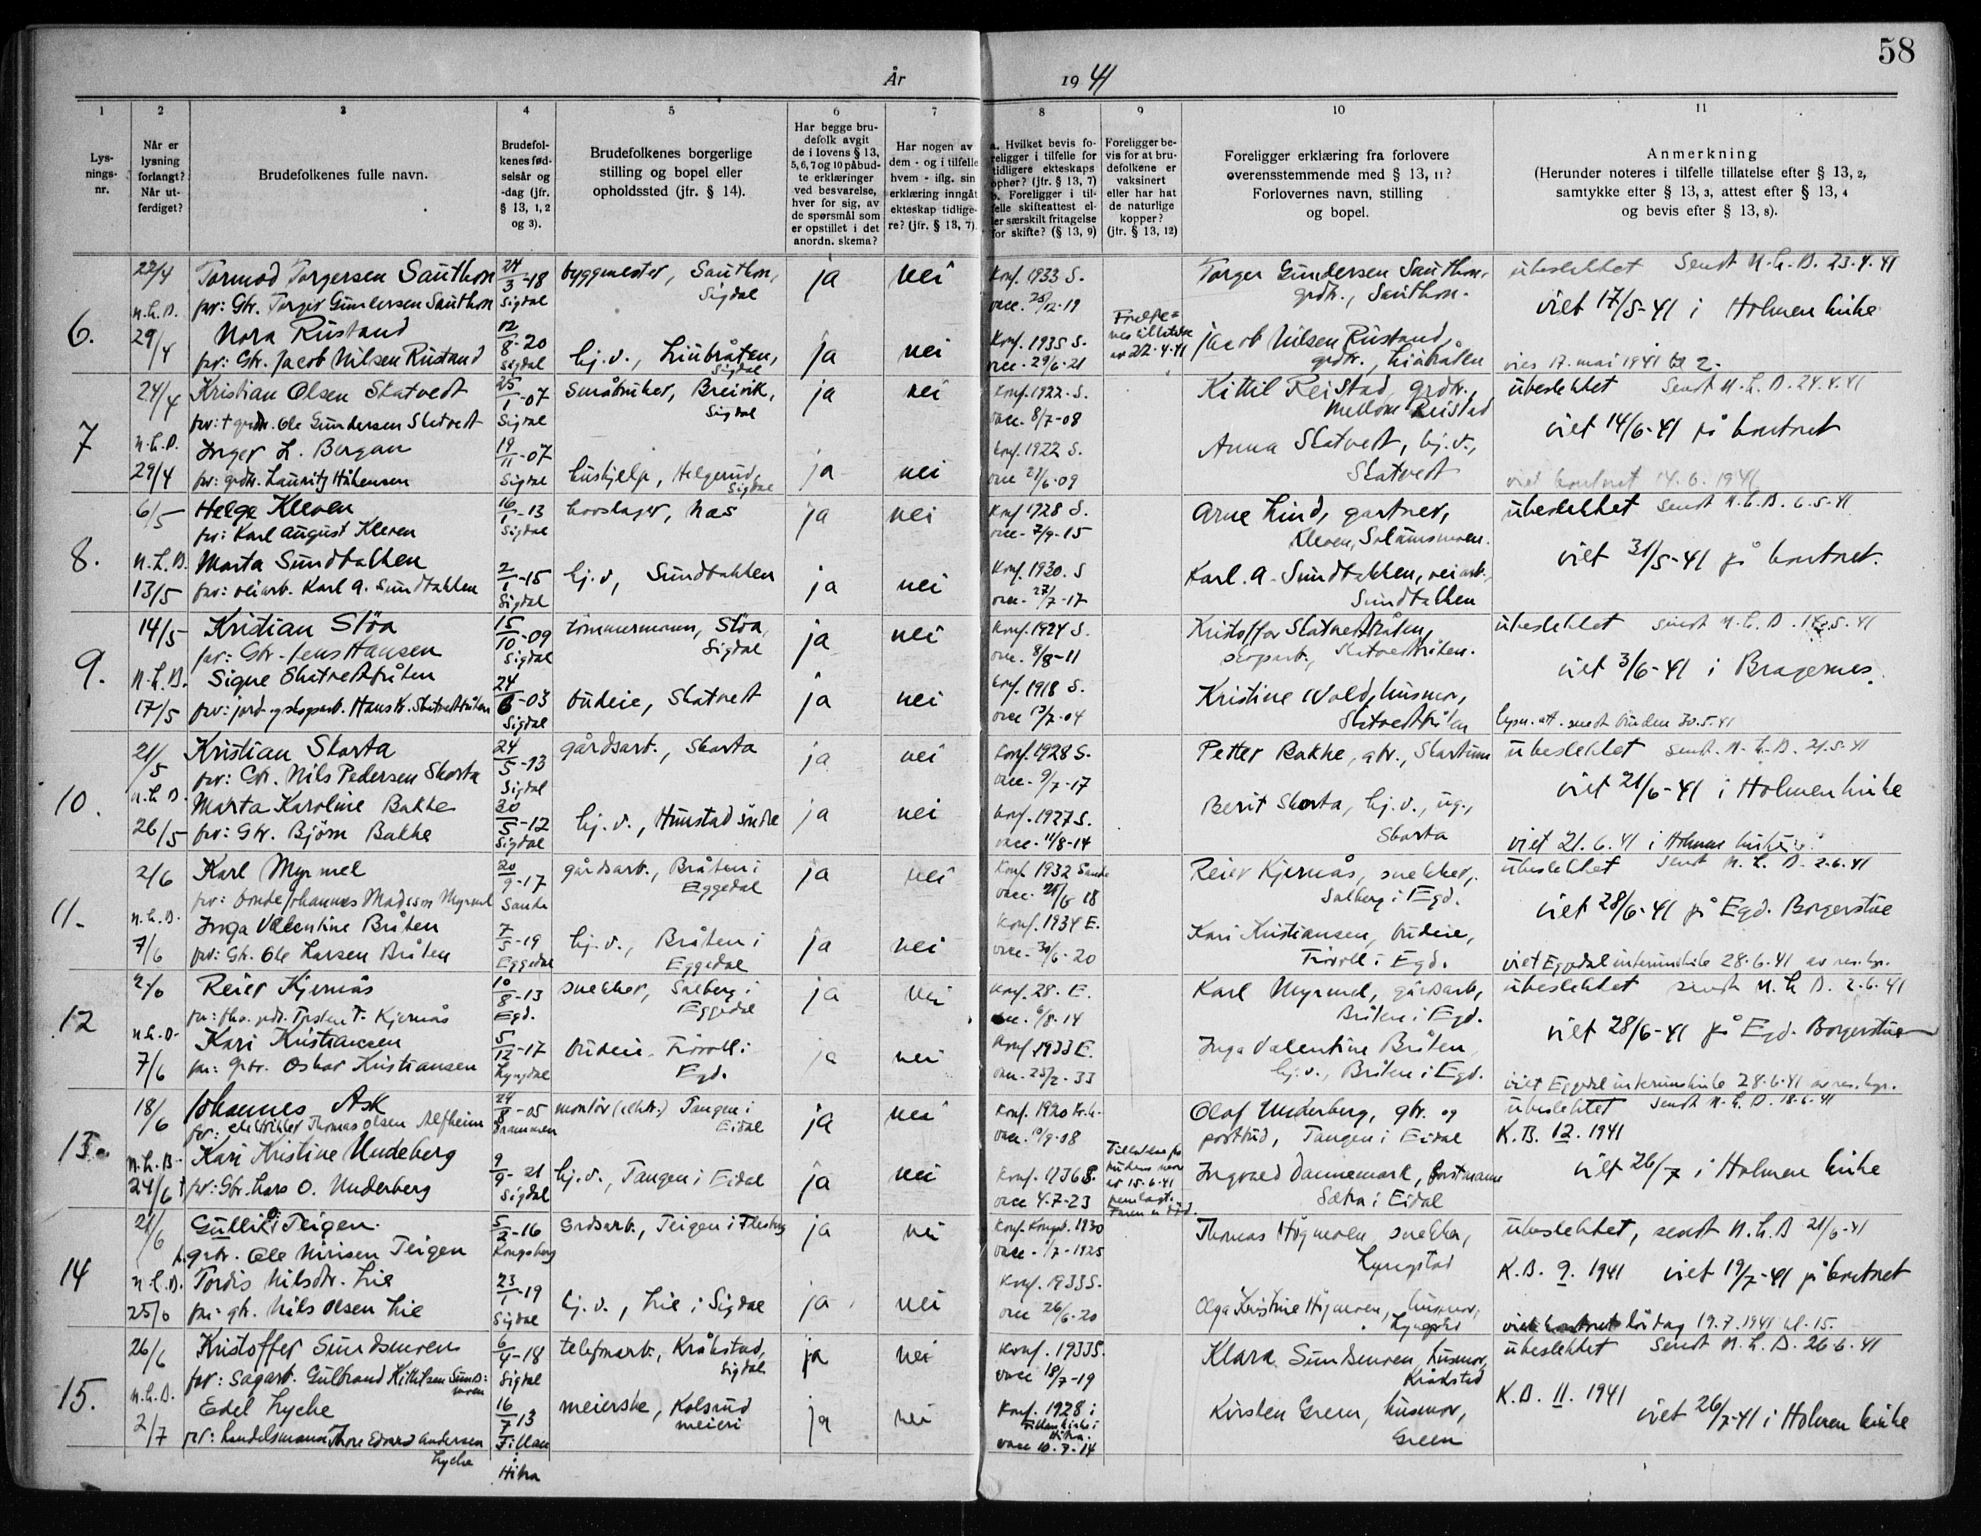 58
År 1941
1 2 3 4 5 6 7 8 9 10 11
Lysnings-nr.
Når er lysning forlangt? Når utferdiget?
Brudefolkenes fulle navn.
Brudefolkenes fødselsår og -dag (jfr. § 13, 1, 2 og 3).
Brudefolkenes borgerlige stilling og bopel eller opholdssted (jfr. § 14).
Har begge brudefolk avgit de i lovens § 13, 5, 6, 7 og 10 påbudte erklæringer ved besvarelse, hver for sig, av de spørsmål som er opstillet i det anordn. skema?
Har nogen av dem - og i tilfelle hvem - iflg. sin erklæring inngått ekteskap tidligere? (jfr. § 13, 7).
a. Hvilket bevis foreligger i tilfelle for tidligere ekteskaps ophør? (jfr. § 13, 7) b. Foreligger i tilfelle skifteattest eller særskilt fritagelse for skifte? (§ 13, 9)
Foreligger bevis for at brudefolkene er vaksinert eller har hat de naturlige kopper? (jfr. § 13, 12)
Foreligger erklæring fra forlovere overensstemmende med § 13, 11? Forlovernes navn, stilling og bopel.
Anmerkning (Herunder noteres i tilfelle tillatelse efter § 13, 2, samtykke efter § 13, 3, attest efter § 13, 4 og bevis efter § 13, 8).
6. 22/4 Tormod Torgersen Sauthon 24/3-18 byggmester, Sauthon, ja nei Konf. 1933 S. Torger Gundersen Sauthon, ubeslektet Sendt N.L.B. 23.4.41
N.L.B. far: Gbr. Torger Gundersen Sauthon Sigdal Sigdal vacc. 28/12-19 grdbr., Sauthon. viet 17/5-41 i Holmen kirke
29/4 Nora Rustand 12/8-20 hj.v., Liubråten, ja nei Konf. 1935 S. Jacob Nilsen Rustand,
far: Gbr. Jacob Nilsen Rustand Sigdal Sigdal vacc. 29/6-21 av 22-4-41 grdbr., Liubråten vies 17. mai 1941 kl 2.
7 24/4 Kristian Olsen Skatvedt 25/1-07 Småbruker, Breivik, ja nei Konf. 1922. S. Kittil Reistad, grdbr., ubeslektet Sendt N.L.B. 24.4.41
far: + grdbr. Ole Gundersen Skatvedt Sigdal Sigdal vacc. 8/7-08 Mellom Reistad viet 14/6-41 på kontoret
N.L.B. Inger L. Bergan 19/11-07 Konf. 1922 S. Anna Skatvedt, hj.v.,
29/4 far: grdbr. Lauritz Håkensen Sigdal hushjelp, Helgerud, Sigdal ja nei vacc 21/6-09 Skatvedt viet kontoret 14.6.1941
8. 6/5 Helge Kleven 16/1-13 hovslager, Nas ja nei Konf 1928 S. Arne Lind, gartner, ubeslektet sendt N.L.B. 6.5.41
far: Karl August Kleven Sigdal vacc- 7/9-15 viet 31/5-41 på kontoret.
N.L.B. Marta Sundbakken 2/1-15 hj.v, Sundbakken ja nei Konf. 1930. S Karl. A. Sundbakken, veiarb.,
13/5 far: veiarb. Karl A. Sundbakken Sigdal vacc- 27/7-17 Sundbakken
9. 14/5 Kristian Støa 15/10-09 tømmermann, Støa, ja nei Konf. 1924 S. Kristoffer Skatvedtbråten, ubeslektet sendt N.L.B.
far: Gbr. Jens Hansen Sigdal Sigdal vacc. 8/8-11 skogsarb., Skatvedtbråten. viet 3/6-41 i Bragernes.
N.L.B. Signe Skatvedtbråten 24/6-03 budeie, Skatvedt ja nei Konf. 1918 S. Kristine Vold, husmor,
17/5 far: jord- og skogarb. Hans K. Skatvedtbråten Sigdal Skatvedtbråten lysn. att. sendt bruden 30.5.41
10. 21/5 Kristian Skarta 24/5-13 gårdsarb., Skarta ja nei Konf. 1928 S. Petter Bakke, gbr., ubeslektet sendt. N.L.B. 21.5.41
far: Gbr. Nils Pedersen Skarta Sigdal vacc- 9/7-17 viet 21/6-41 i Holmen kirke
N.L.B. Marta Karoline Bakke 20/5-12 hj.v., Hunstad søndre ja nei Konf. 1927 S. Berit Skarta, hj.v., ug.,
26/5 far: Gbr. Bjørn Bakke Sigdal vacc- 11/8-14 Skarta viet 21.6.41 i Holmen kirke
11. 2/6 Karl Myrmel 20/9-17 gårdsarb., Bråten i Eggedal ja nei Konf. 1932 Sande Reier Kjernås, snekker, ubeslektet sendt N.L.B. 2.6.41
far: bonde Johannes Madsson Myrmel Sande Solberg i Egd. viet 28/6-41 på Egd. Borgerstue
N.L.B. Inga Valentine Bråten 7/5-19 hj.v., Bråten i Eggedal ja nei Konf. 1934 E. Kari Kristiansen, budeie,
7/6 far: Gbr. Ole Larsen Bråten Eggedal vacc- 30/6-20 i Egd. viet Eggedal interimskirke 28.6.41 av res. kpr.
12 2/6 Reier Kjernås 10/8-13 snekker, Solberg i Eggedal ja nei Konf. 28. E. Karl Myrmel, gårdsarb., ubeslektet sendt N.L.B. 2.6.41
Kjernås Egd. vacc. 6/8-14 Bråten i Egd. viet 28/6-41 på Egd. Borgerstue
N.L.B. Kari Kristiansen 5/12-17 budeie. Egd. ja nei Konf. 1933 E. Inga Valentine Bråten
7/6 far: Gbr. Oskar Kristiansen Lyngdal vacc. 25/2-33 hj.v., Bråten i Egd. viet Eggedal interimskirke 28.6.41 av res. kpr.
13. 18/6 Johannes Ask 24/8-05 montør (elektr.) Tangen i Eidal ja nei Konf. 1920 Olaf Underberg, gbr. og ubeslektet Sendt N.L.B. 18.6.41
far: elektriker Thomas Olsen Alfheim Drammen vacc. 10/9-08 postbud, Tangen i Eidal K.B. 12. 1941
N.L.B. Kari Kristine Undeberg 9/9-21 hj.v., Tangen i Eidal ja nei Konf. 1936 S. Ingvald Dannemark, forstmann viet 26/7 i Holmen kirke
24/6 far: Gbr. Lars O. Underberg Sigdal vacc 4.7-23 Sætra i Eidal
14 21/6 Gullik Teigen. 5/2-16 Grdsarb., Teigen i Flesberg ja nei Konf. Kongsb. 1930 Thomas Høgmoen snekker, ubeslektet, sendt N.L.B 21/6-41
gbr. Ole Nirisen Teigen Kongsberg vacc- 1/7-1925 Lyngstad K.B. 9. 1941 viet 19/7-41 på kontoret
N.L.B. Tordis Nilsdtr. Lie 23/1-19 hj.v., Lie i Sigdal ja nei Konf. 1933 S. Olga Kristine Høgmoen, husmor,
25/6 far: gbr. Nils Olsen Lie Sigdal vacc 26/6-20 Lyngstad viet kontoret lørdag 19.7.1941 kl. 15.
15. 26/6 Kristoffer Sundsmoren 6/4-18 telefonarb., Kråkstad, Sigdal ja nei Konf. 1933 S. Klara Sundsmoren, husmor, Kråkstad ubeslektet sendt N.L.B. 26.6.41
far: Sagarb. Gulbrand Kittilsen Sundsmoren Sigdal vacc 18/7-19 K.B. 11. 1941
N.L.B. Edel Lyche 16/7-13 meierske, Kolsrud meieri ja nei Konf. 1928 i Hitra. Kirsten Green, husmor, Green viet 26/7-41 i Holmen kirke
2/7 far: handelsmann Thore Edvard Andersen Lyche Fillan i Hitra vacc 10.7.14